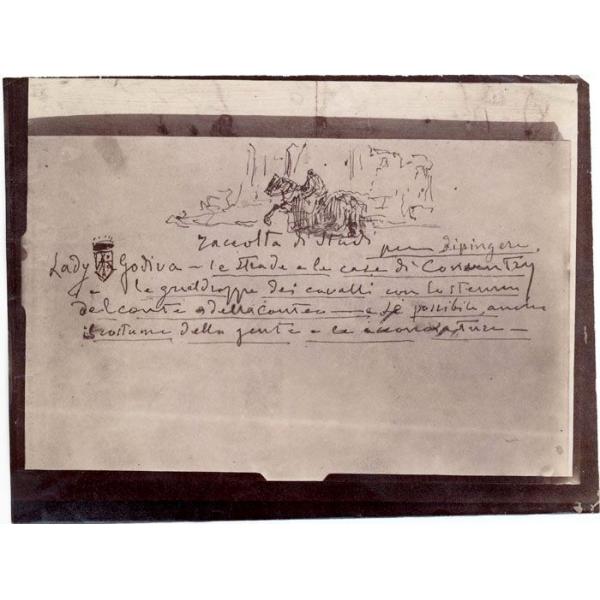 Raccolta di Studi per dipingere
Lady Godiva - le strade e le case di Conventry
- le gualdrappe dei cavalli con lo stemma
del conte e della contea - e se possibile, anche
il costume della gente e le acconciature -